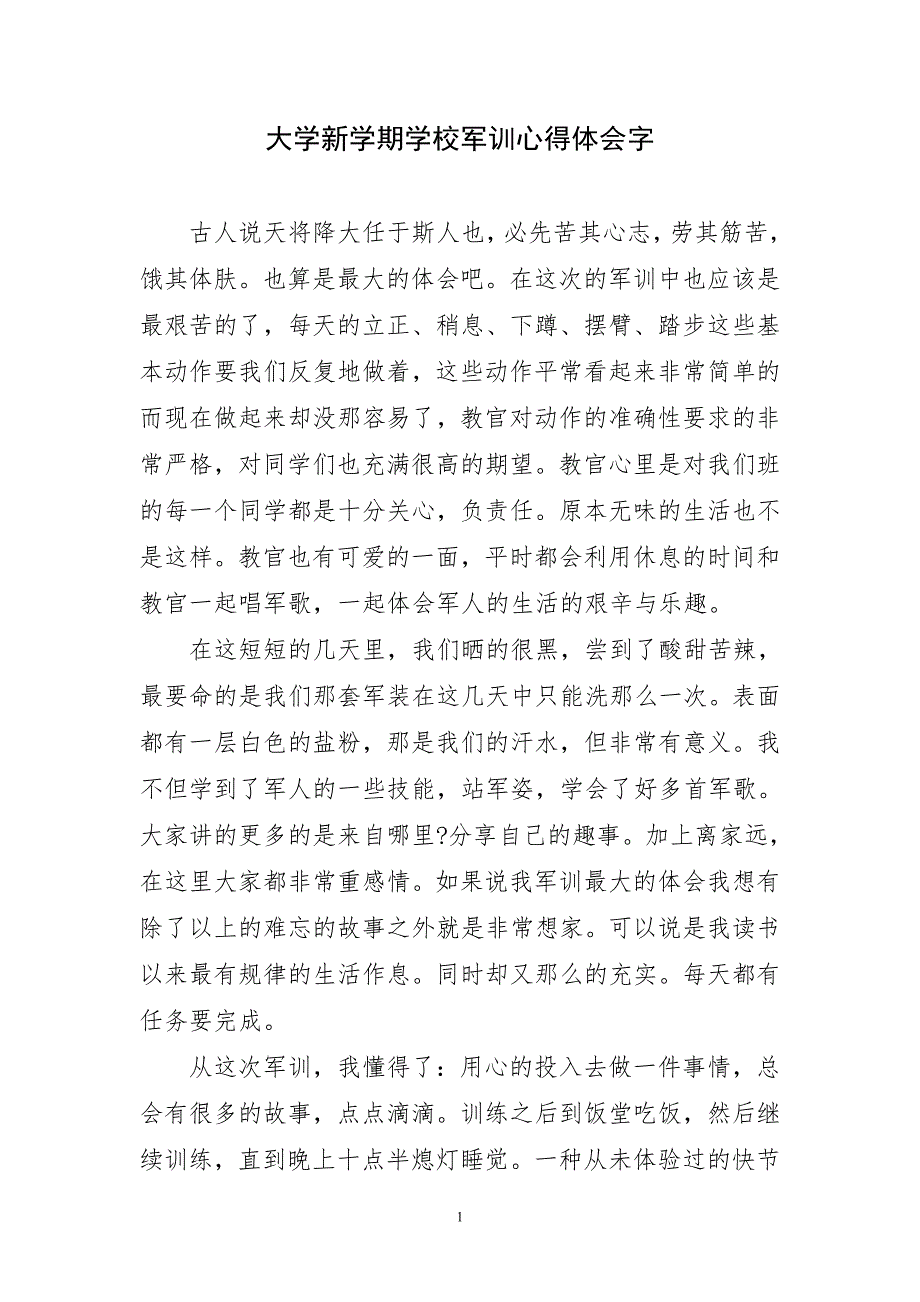 大学新学期学校军训心得体会字
古人说天将降大任于斯人也，必先苦其心志，劳其筋苦，
饿其体肤。也算是最大的体会吧。在这次的军训中也应该是
最艰苦的了，每天的立正、稍息、下蹲、摆臂、踏步这些基
本动作要我们反复地做着，这些动作平常看起来非常简单的
而现在做起来却没那容易了，教官对动作的准确性要求的非
常严格，对同学们也充满很高的期望。教官心里是对我们班
的每一个同学都是十分关心，负责任。原本无味的生活也不
是这样。教官也有可爱的一面，平时都会利用休息的时间和
教官一起唱军歌，一起体会军人的生活的艰辛与乐趣。
在这短短的几天里，我们晒的很黑，尝到了酸甜苦辣，
最要命的是我们那套军装在这几天中只能洗那么一次。表面
都有一层白色的盐粉，那是我们的汗水，但非常有意义。我
不但学到了军人的一些技能，站军姿，学会了好多首军歌。
大家讲的更多的是来自哪里?分享自己的趣事。加上离家远，
在这里大家都非常重感情。如果说我军训最大的体会我想有
除了以上的难忘的故事之外就是非常想家。可以说是我读书
以来最有规律的生活作息。同时却又那么的充实。每天都有
任务要完成。
从这次军训，我懂得了：用心的投入去做一件事情，总
会有很多的故事，点点滴滴。训练之后到饭堂吃饭，然后继
续训练，直到晚上十点半熄灯睡觉。一种从未体验过的快节
1